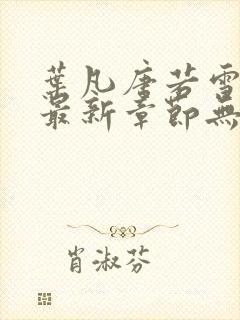 葉凡唐若雪
最新章節無
肖淑芬